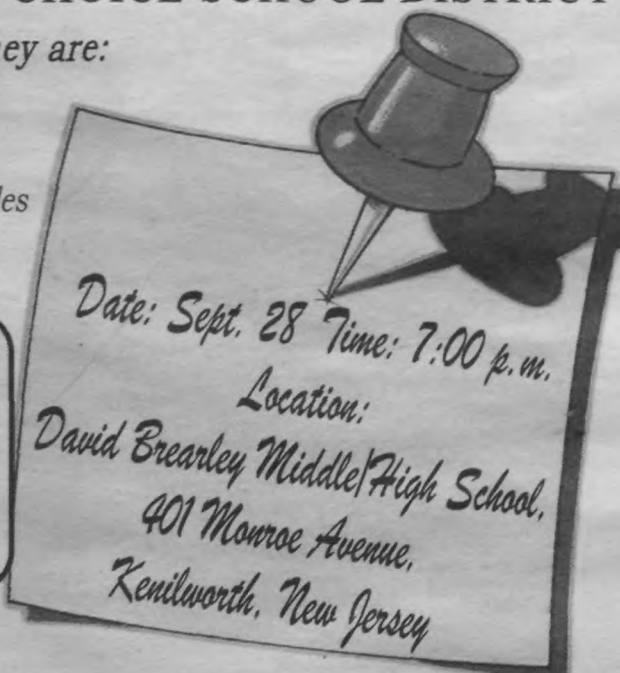 CHOICE SCHOOL DISTRICT
ey are:
les
Date: Sept. 28 Time: 7:00 p.m.
Location:
David Brearley Middle/High School,
401 Monroe Avenue,
Kenilworth, New Jersey